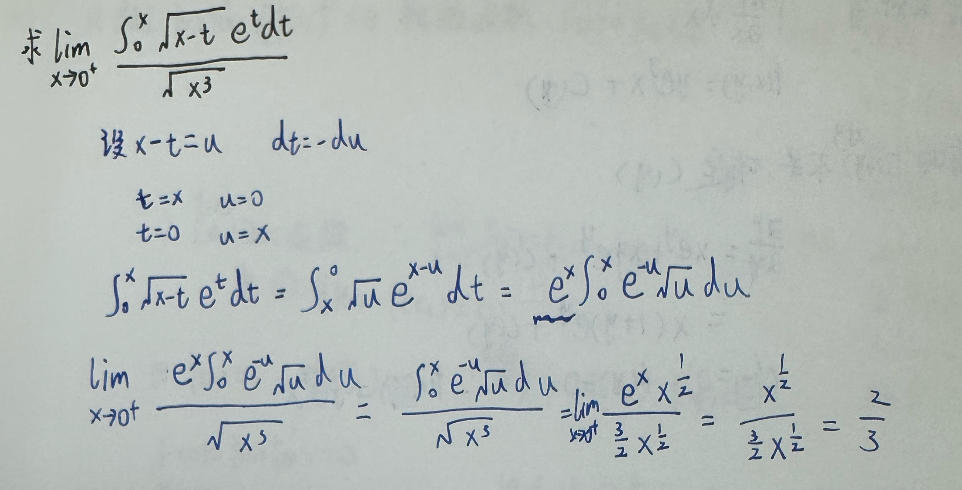 求 lim x→0⁺ ∫₀ˣ √(x-t) eᵗdt / √(x³)
设 x-t=u dt=-du
t=x u=0
t=0 u=x
∫₀ˣ √(x-t) eᵗdt = ∫ₓ⁰ √u e^(x-u) dt = eˣ∫₀ˣ e^(-u)√u du
lim x→0⁺ eˣ∫₀ˣ e^(-u)√u du / √(x³) = ∫₀ˣ e^(-u)√u du / √(x³) = lim x→0⁺ eˣ x^(1/2) / (3/2 x^(1/2)) = x^(1/2) / (3/2 x^(1/2)) = 2/3